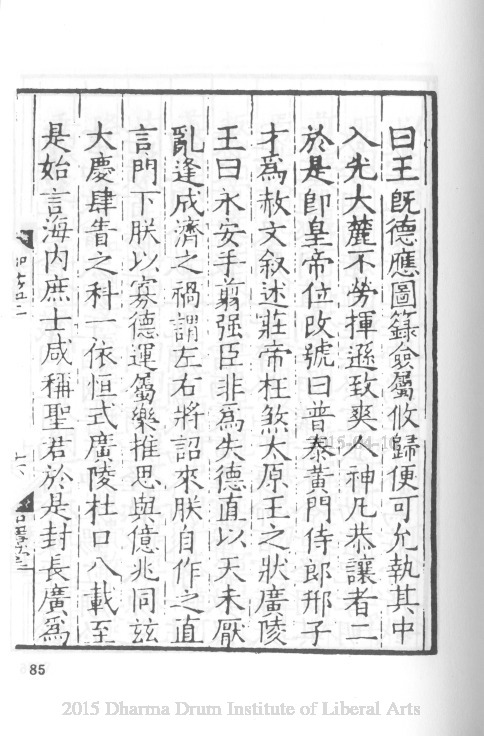 曰王旣德應圖籙僉屬攸歸便可允執其中
入光大麓不勞揮遜致爽人神凡恭讓者二
於是卽皇帝位改號曰普泰黃門侍郎邢子
才爲赦文叙述莊帝枉煞太原王之狀廣陵
王曰永安手翦强臣非爲失德直以天未厭
亂逢成濟之禍謂左右將詔來朕自作之直
言門下朕以寡德運屬樂推思與億兆同玆
大慶肆眚之科一依恒式廣陵杜口八載至
是始言海內庶士咸稱聖君於是封長廣爲
85
2015-04-10
2015 Dharma Drum Institute of Liberal Arts